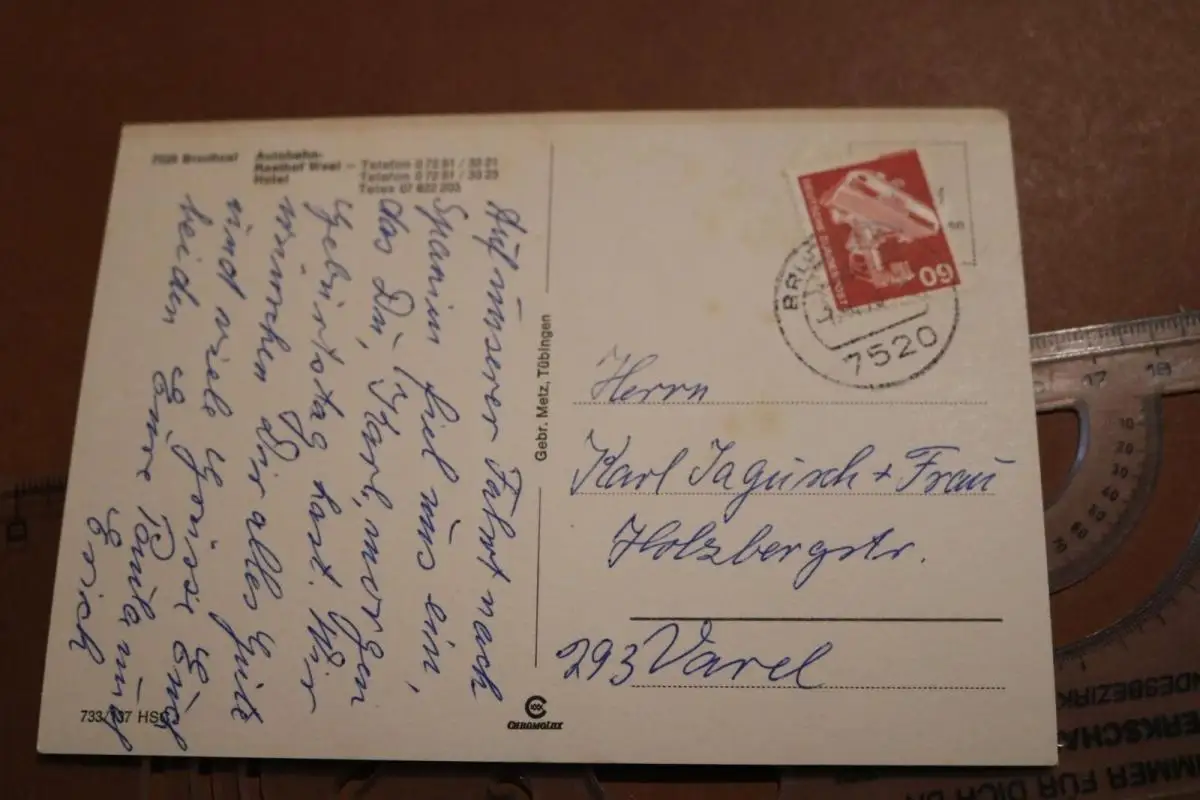 7520 Bruchsal
Autobahn-
Rasthof West –
Hotel
Telefon 0 72 51 / 33 21
Telefon 0 72 51 / 33 23
Telex 07 822 203
Auf unserer Fahrt nach
Spanien fiel uns ein,
das Du, Karl, morgen
Geburtstag hast. Wir
wünschen Dir alles Gute
und viele Grüsse Euch
beiden Eure Paula und
Erich
733/137 HSC
Gebr. Metz, Tübingen
CHROMOLUX
DEUTSCHE BUNDESPOST
60
7520
Herrn
Karl Jagusch + Frau
Holzbergstr.
293 Varel
17 18
10
20
30